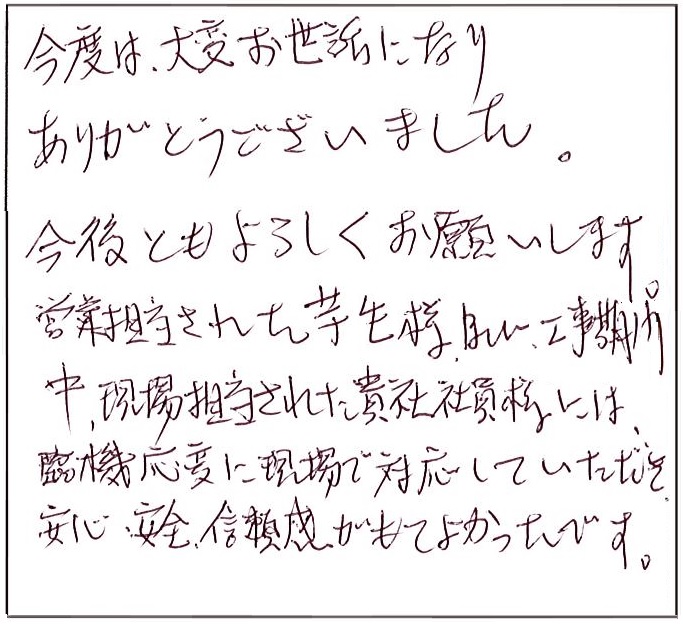 今度は、大変お世話になり
ありがとうございました。
今後ともよろしくお願いします。
営業担当された芋生様、並びに、工事期間
中、現場担当された貴社社員様には、
臨機応変に現場で対応していただき
安心、安全、信頼感がもてよかったです。